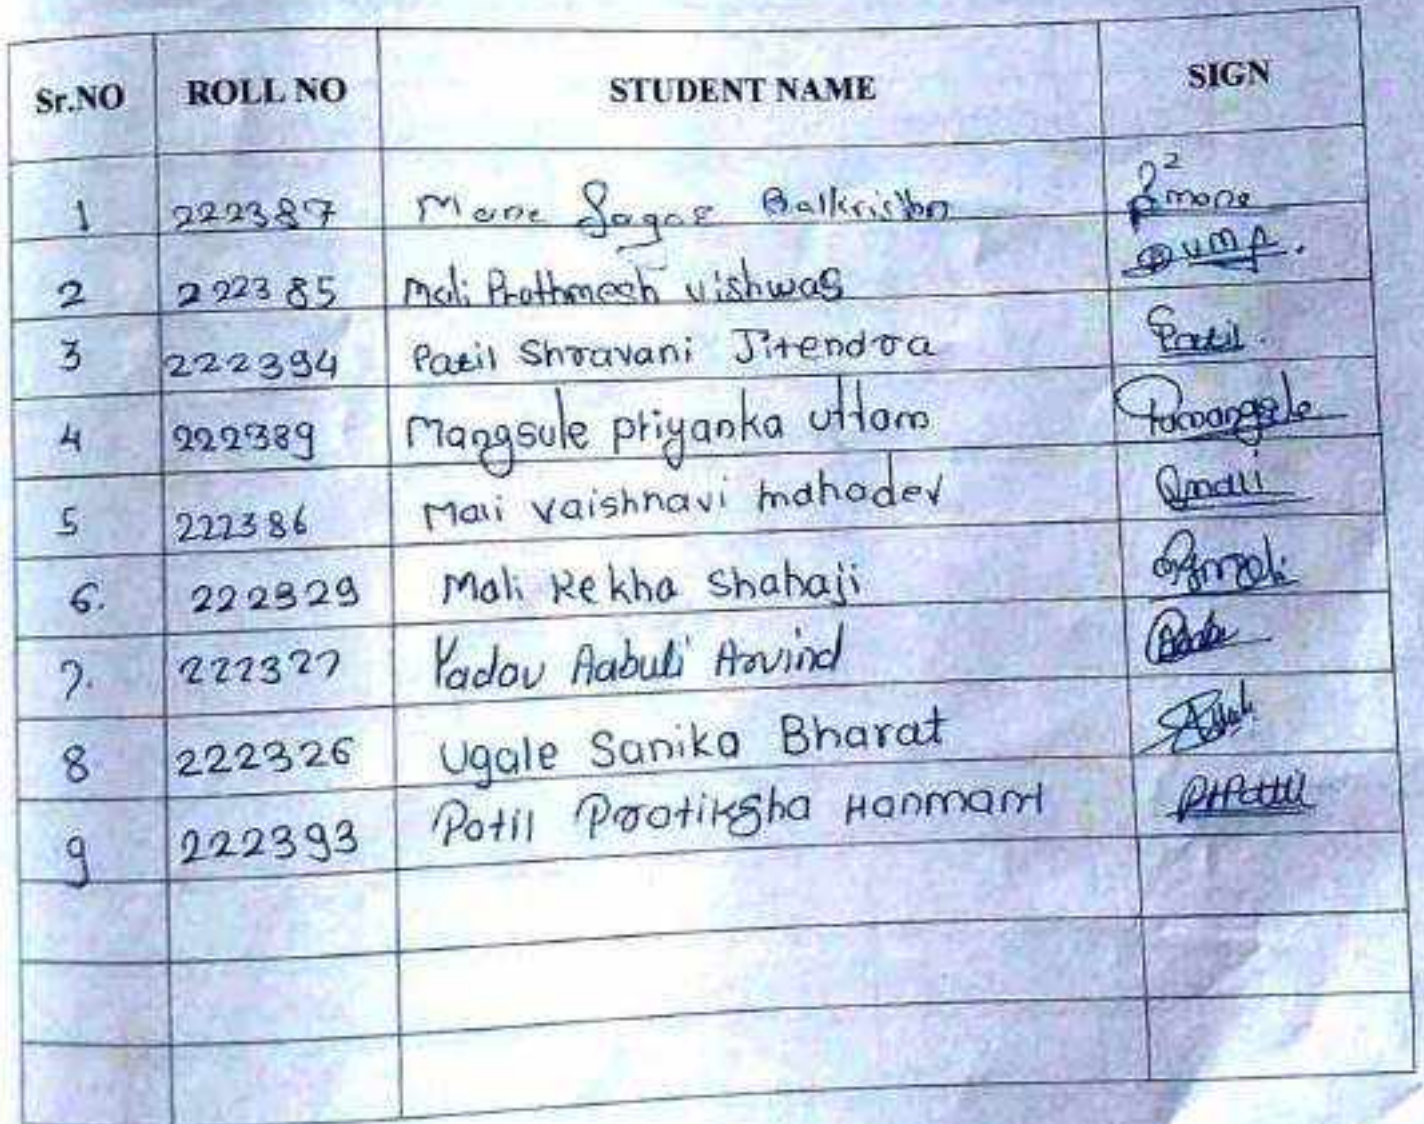 Sr.NO ROLL NO STUDENT NAME SIGN
1 222387 Mane Sagar Balkrishn mone
2 222385 Mali Prathmesh vishwas
3 222394 Patil Shravani Jitendra Patil.
4 222389 Mangsule priyanka uttam Pumangsule
5 222386 Mali vaishnavi mahadev mali
6. 222329 Mali Rekha Shahaji mali
7. 222327 Yadav Aabuli Arvind
8 222326 Ugale Sanika Bharat
9 222393 Patil Pratiksha Hanmant PHPatil